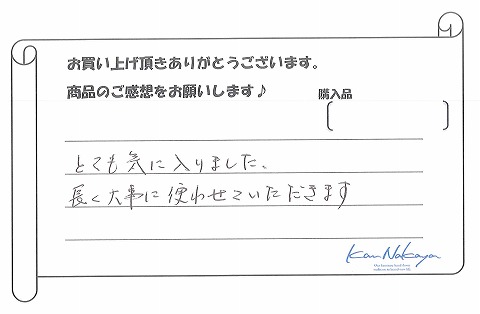 お買い上げ頂きありがとうございます。
商品のご感想をお願いします♪
購入品
とても気に入りました、
長く大事に使わせていただきます
Kan Nakaya